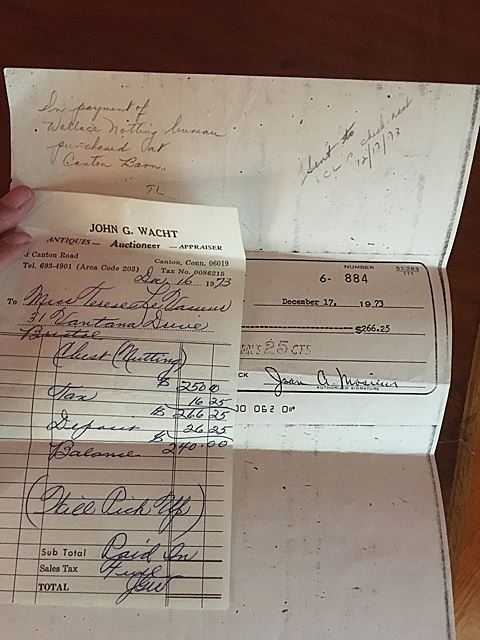 In payment of
Wallace Nutting bureau
purchased at
Canton Barn.
TL
Sent to
check and
12/17/73
JOHN G. WACHT
ANTIQUES — Auctioneer — APPRAISER
Canton Road Canton, Conn. 06019
Tel. 693-4901 (Area Code 203) Tax No. 0086215
Dec 16 1973
To Miss Terese
31 Vantana Drive
Bristol
(Chest (Nutting)
$ 250 0
Tax 16 25
$ 266 25
Deposit 26 25
Balance $ 240.00
(Will Pick Up)
Sub Total Paid In
Sales Tax Full
TOTAL JGW
NUMBER 51-283
111
6- 884
December 17, 1973
$266.25
25 CTS
CK
AUTHORIZED SIGNATURE
00 062 0